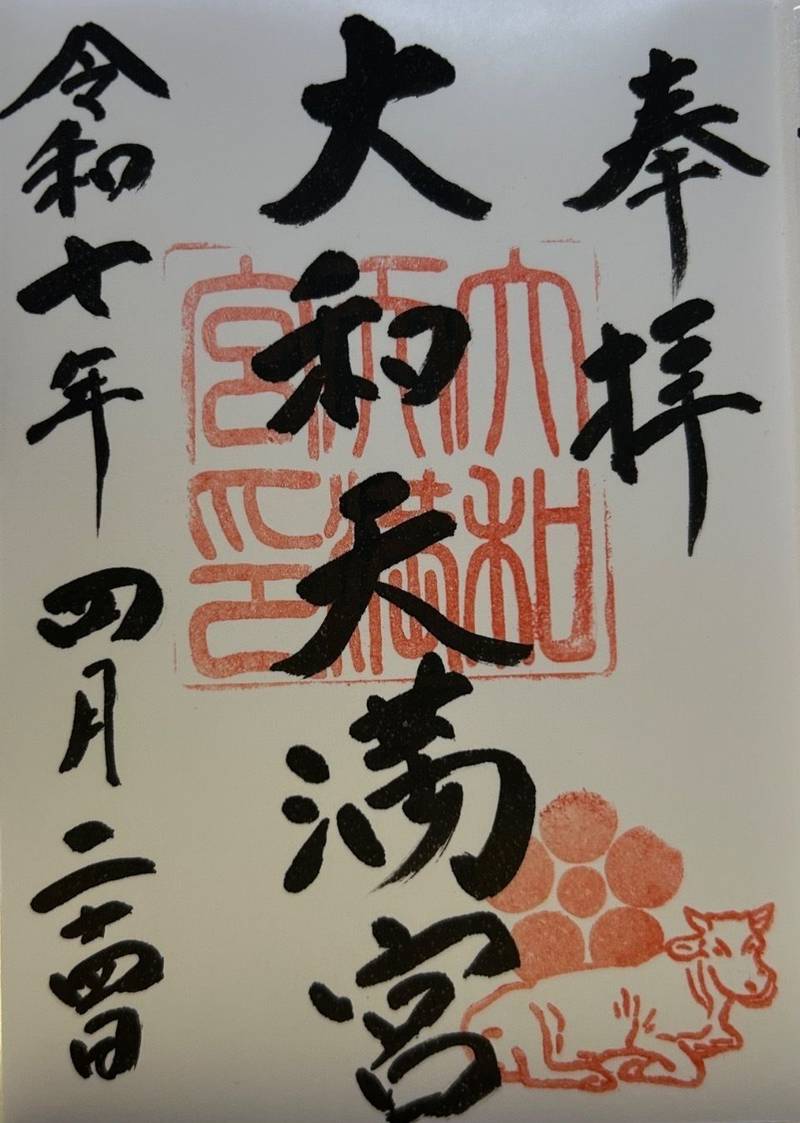 奉拝
大和天満宮
大和
天満
宮印
令和七年四月二十四日